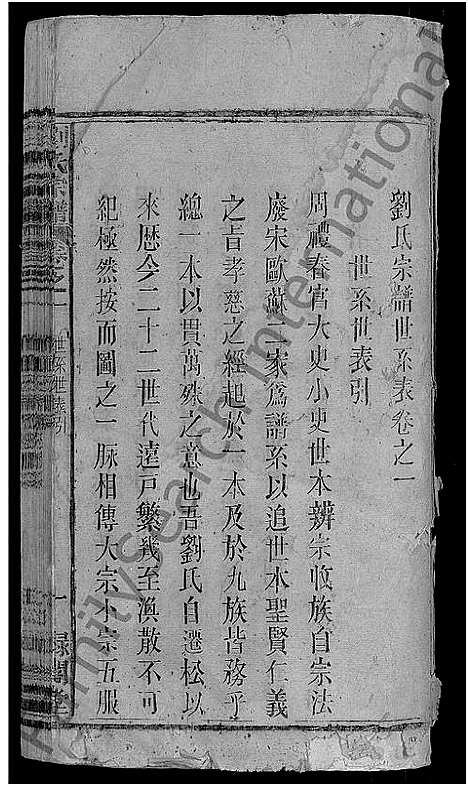 劉氏宗譜世系表卷之一
世系世表引
周禮春官大史小史世本辨宗收族自宗法
廢宋歐蘇二家爲譜系以追世本聖賢仁義
之旨孝慈之經起於一本及於九族皆務乎
總一本以貫萬殊之意也吾劉氏自遷松以
來歴今二十二世代遠戸繁幾至渙散不可
紀極然按而圖之一脉相傳大宗小宗五服
劉氏宗譜 卷之一
世系世表引
一
堂
FamilySearch International